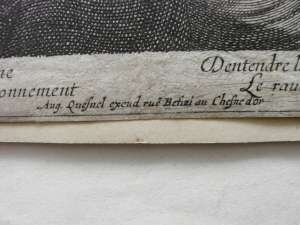 ne Dentendre l
onnement Le rau
Aug. Quesnel excud ruë Betizi au Chesne dor